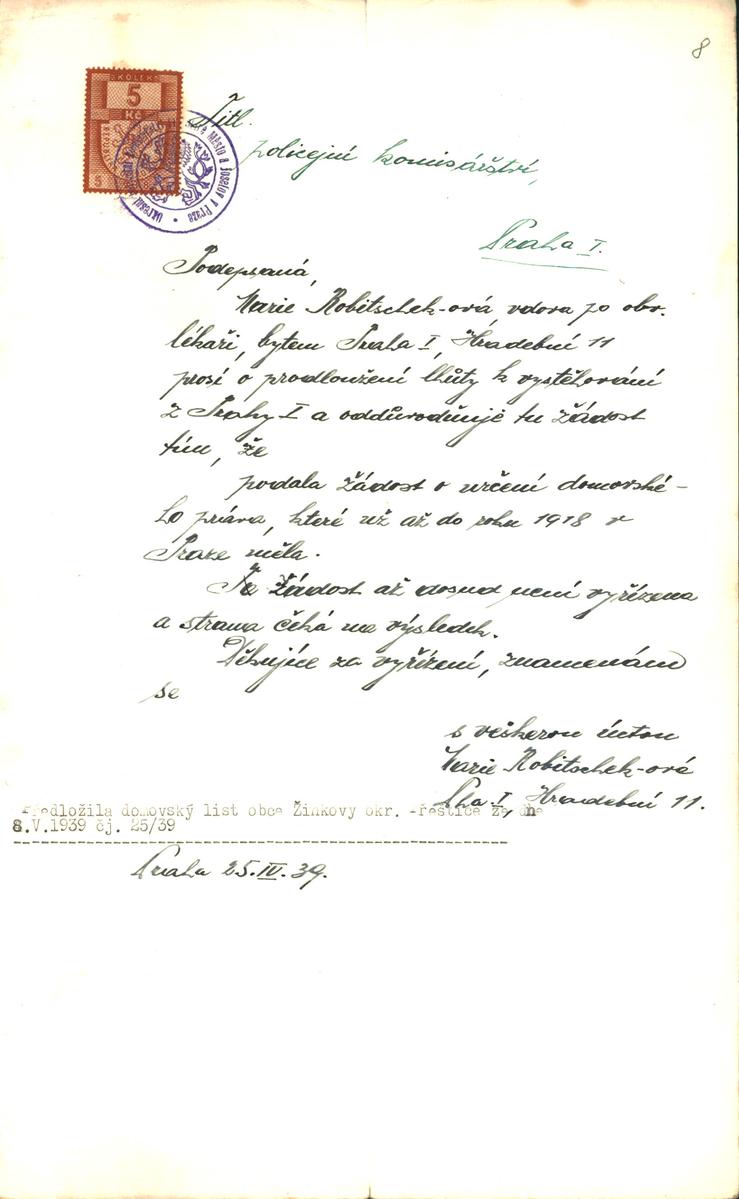 8
KOLEK
5
Kč
5
Titl.
policejní komisářství,
Praha I.
Podepsaná,
Marie Robitschek-ová, vdova po obv.
lékaři, bytem Praha I, Hradební 11
prosí o prodloužení lhůty k vystěhování
z Prahy I a oddůvodňuje tu žádost
tím, že
podala žádost o určení domovské-
ho práva, které už až do roku 1918 v
Praze měla.
Ta žádost až dosud není vyřízena
a strana čeká na výsledek.
Děkujíce za vyřízení, znamenám
se
s veškerou úctou
Marie Robitschek-ová
Pha I, Hradební 11.
Předložila domovský list obce Žinkovy okr. Přeštice ze dne
8.V.1939 čj. 25/39
Praha 25.IV.39.